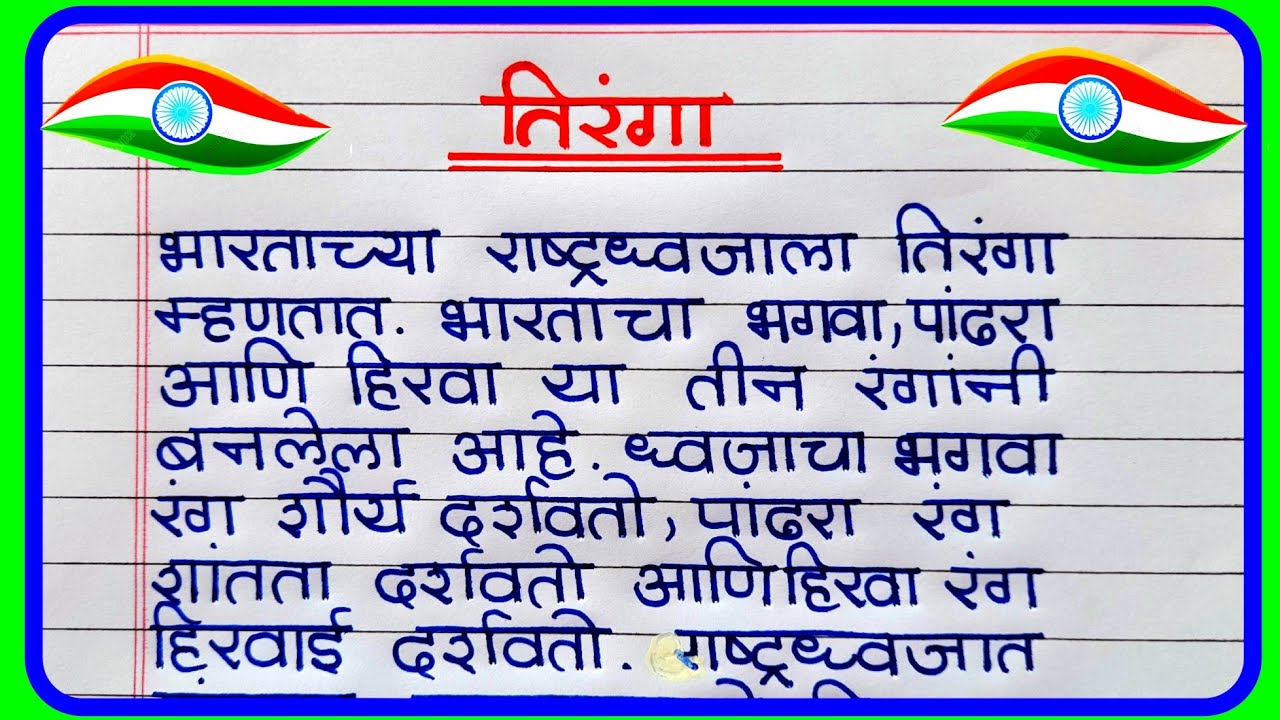 तिरंगा
भारताच्या राष्ट्रध्वजाला तिरंगा
म्हणतात. भारताचा भगवा, पांढरा
आणि हिरवा या तीन रंगांनी
बनलेला आहे. ध्वजाचा भगवा
रंग शौर्य दर्शवतो, पांढरा रंग
शांतता दर्शवतो आणि हिरवा रंग
हिरवाई दर्शवतो. राष्ट्रध्वजात